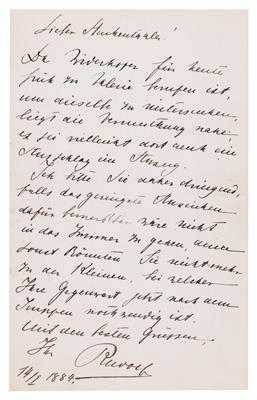 Lieber Huckenthaler!
Da Widerhofer für heute
früh zu Valerie berufen ist,
um dieselbe zu untersuchen,
liegt die Vermuthung nahe
es sei vielleicht dort auch ein
Ausschlag im Anzug.
Ich bitte Sie daher dringend,
falls das geringste Anzeichen
dafür bemerkbar wäre nicht
in das Zimmer zu gehen, denn
sonst könnten Sie nicht mehr
zu der Kleinen, bei welcher
Ihre Gegenwart jetzt nach dem
Impfen nothwendig ist.
Mit den besten Grüssen,
Ihr Rudolf
14/I 1884.